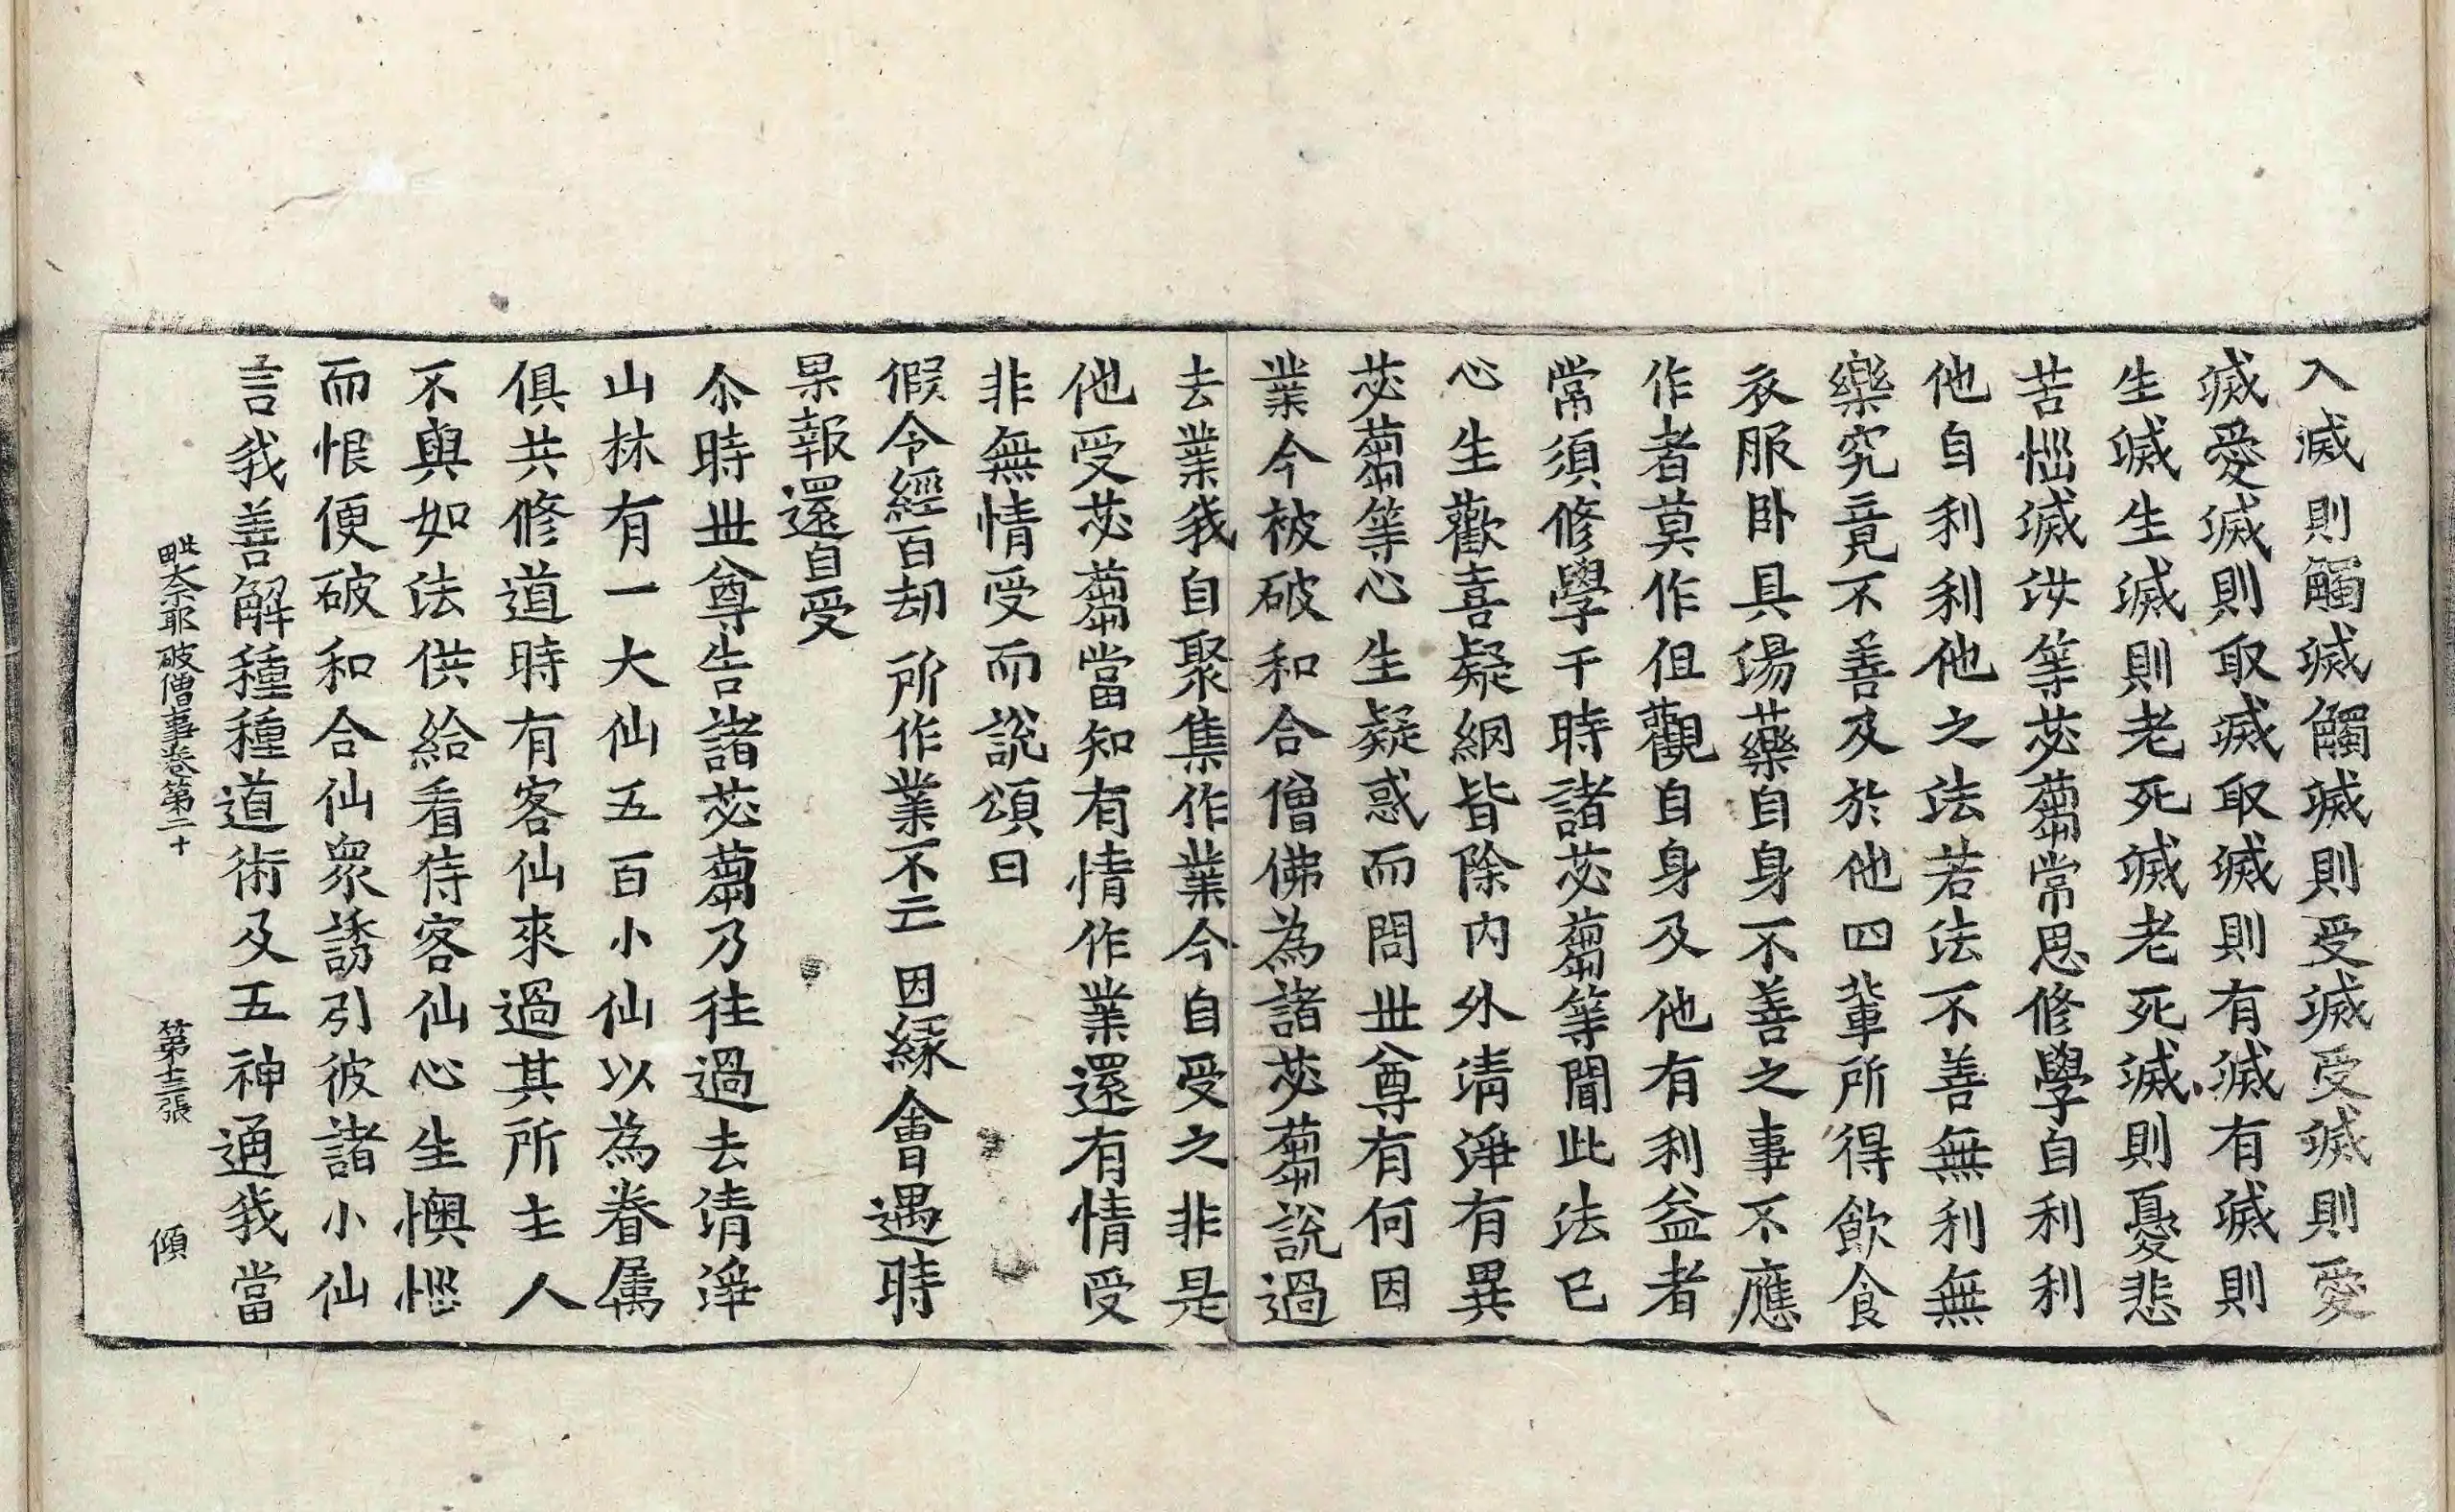 入滅則觸滅觸滅則受滅受滅則愛
滅愛滅則取滅取滅則有滅有滅則
生滅生滅則老死滅老死滅則憂悲
苦惱滅汝等苾蒭常思修學自利利
他自利利他之法若法不善無利無
樂究竟不善及於他四輩所得飲食
衣服卧具湯藥自身不善之事不應
作者莫作但觀自身及他有利益者
常須修學于時諸苾蒭等聞此法已
心生歡喜疑網皆除内外清淨有異
苾蒭等心生疑惑而問世尊有何因
業今被破和合僧佛為諸苾蒭說過
去業我自聚集作業今自受之非是
他受苾蒭當知有情作業還有情受
非無情受而說頌曰
假令經百劫 所作業不亡 因緣會遇時
果報還自受
尒時世尊告諸苾蒭乃往過去清淨
山林有一大仙五百小仙以為眷属
俱共修道時有客仙來過其所主人
不與如法供給看侍客仙心生懊惱
而恨便破和合仙衆誘引彼諸小仙
言我善解種種道術及五神通我當
毗奈耶破僧事卷第二十 第十三張 傾